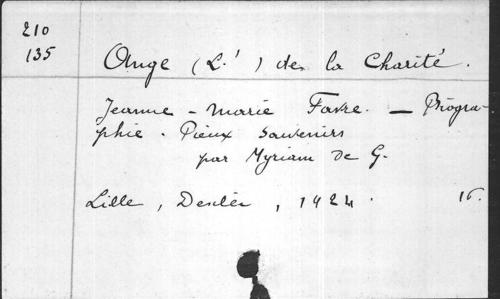 210
135
Ange (L.') de la Charité.
Jeanne-Marie Favre. — Biogra-
phie. Pieux Souvenirs
par Myriam de G.
Lille, Desclée, 1924. 16.